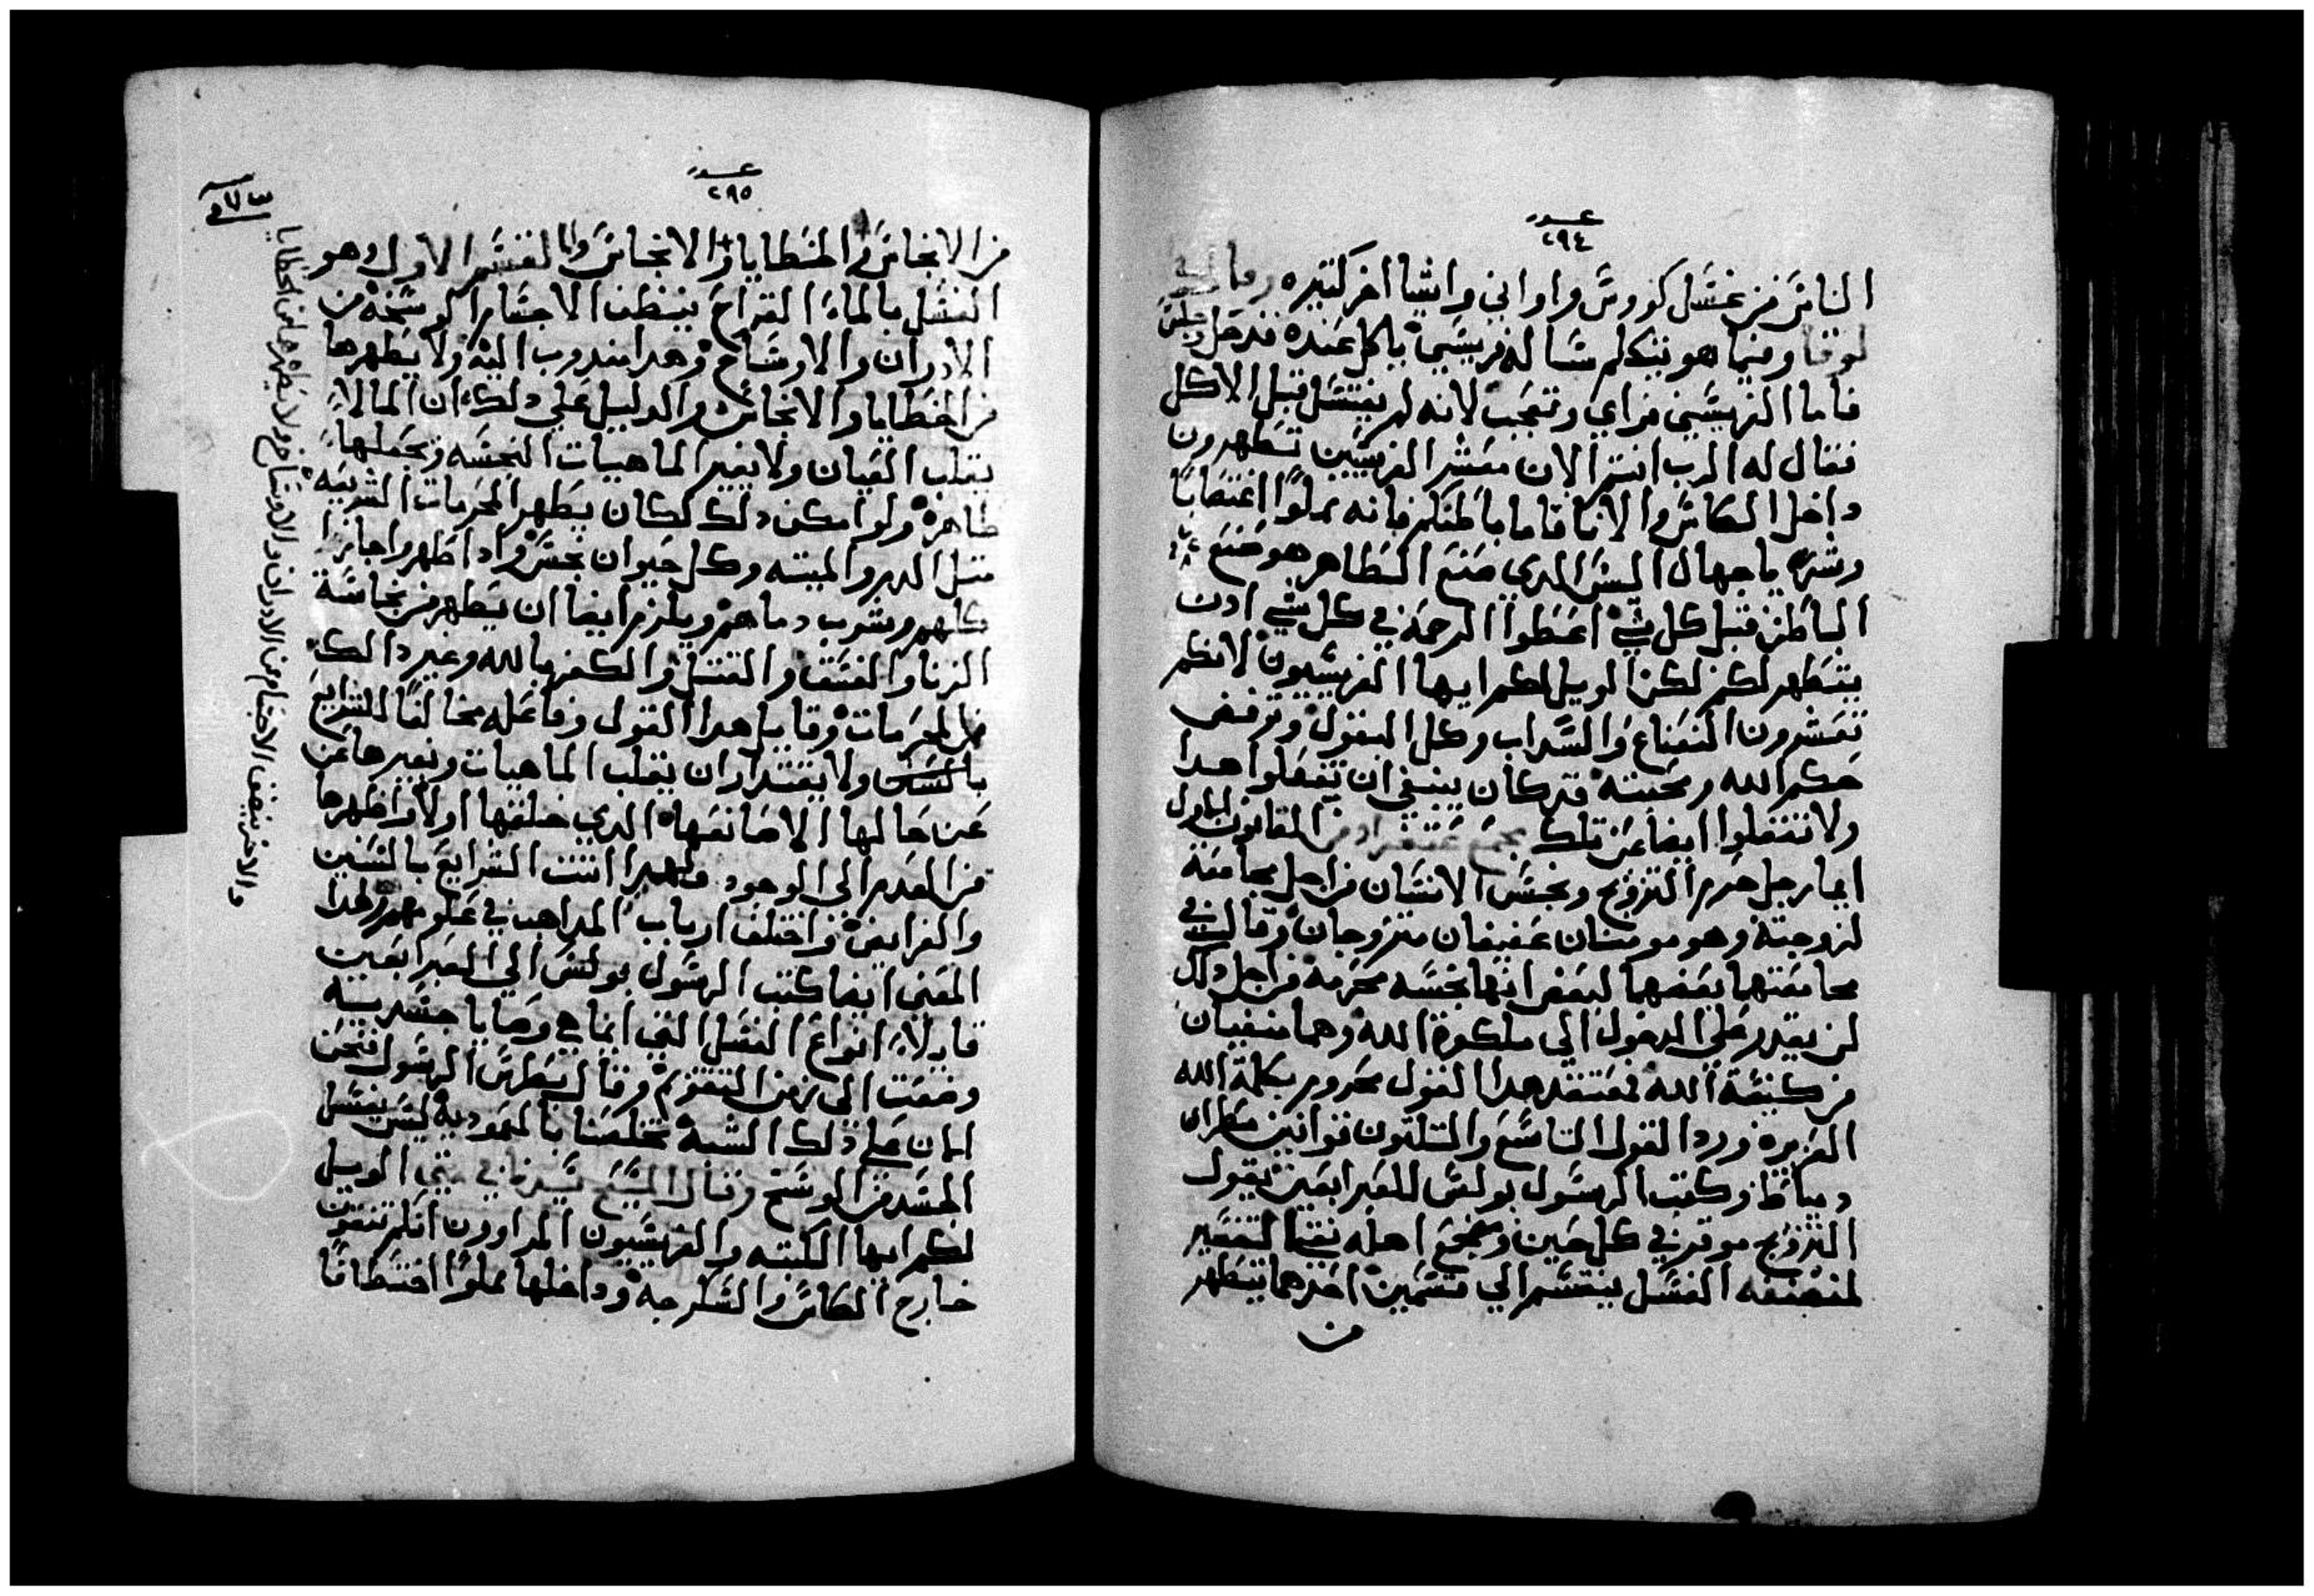 عدد
٢٩٤
الناس من غسل كووس واواني واشيا اخر كتيره
لوقا وفيما هو يتكلم ساله فريسي ياكل عنده فدخل وجلس
فاما الفريسي فراي وتعجب لانه لم يغتسل قبل الاكل
فقال له الرب انتم الان معشر الفريسيين تطهرون
داخل الكاس والانا فاما باطنكم فانه مملوا اغتصابا
وشره يا جهال اليس الدي صنع الظاهر هو صنع
الباطن قبل كل شي اعطوا الرحمه في كل شي ادن
يتطهر لكم لكن الويل لكم ايها الفريسيون لانكم
تعشرون النعناع والسداب وكل البقول وترفض
حكم الله ومحبته قد كان ينبغي ان تفعلوا هدا
ولا تغفلوا ايضا عن تلك مجمع القانون الاول
ايما رجل حرم التزويج ونجس الانسان من اجل مجامعة
لزوجته وهو مومنان عفيفان متزوجان وقال
مجامعتها بعضهما لبعض انها نجسه محرمه من اجل دلك
لن يقدر علي الدخول الي ملكوة الله وهما منفيان
من كنيسة الله فمعتقد هدا القول محروم بكلمة الله
العزيزه ورد القول التاسع والتلتون قوانين مطران
دمياط وكتب الرسول بولس للعبرانيين يقول
التزويج موقر في كل حين ومضجع اهله نقي التفسير
لمصنفه الغسل ينقسم الي قسمين احدهما يتطهر
من
عدد
٢٩٥
من الانجاس والخطايا والانجاس واما القسم الاول وهو
الغسل بالماء القراح ينظف الاجسام الوسخه من
الادران والاوساخ وهدا مندوب اليه ولا يطهرها
من الخطايا والانجاس والدليل علي دلك ان الما لا
يقلب العيان ولا يغير الماهيات النجسه ويجعلها
طاهره ولو امكن دلك لكان يطهر المحرمات الشريعه
متل الدم والميته وكل حيوان نجس وادا طهروا جاز
كلهم وشرب دماهم ويلزم ايضا ان يطهر من نجاسة
الزنا والفسق والقتل والكفر بالله وغير دالك
من المحرمات وقايل هدا القول وفاعله مخالفا للشرايع
ولا يقتدر ان يقلب الماهيات ويغيرها من
عن حالها الا صانعها الدي خلقها اولا واظهرها
من العدم الي الوجود ولهدا اتت الشرايع بالسنين
والفرايض واختلف ارباب المداهب في علومهم ولهدا
المعني ايضا كتب الرسول بولس الي العبرانيين
قايلا انواع الغسل التي انما هي وصايا جسديه
وضعت الي زمن التقويم وقال بطرس الرسول فنحن
الان علي دلك الشبه تخلصنا بالمعموديه ليس بغسل
الجسد من الوسخ وقال المسيح سيدنا في متي الويل
لكم ايها الكتبه والفريسيون المراوون انكم تنقون
خارج الكاس والسكرجه وداخلها مملوا اختطافا
والاخر ينظف الاجسام من الادران والاوساخ ولا يطهرها من الخطايا